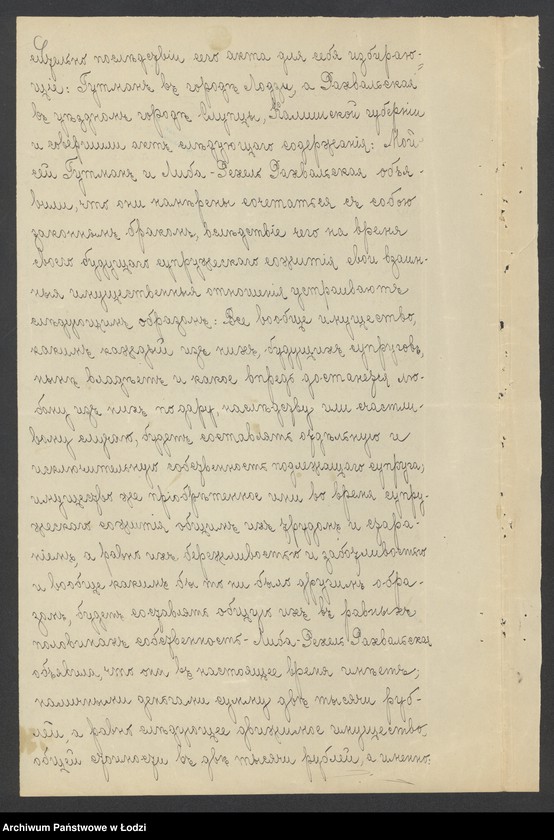 ство послѣдствіи сего акта для себя избираю-
щіе: Гутманъ въ городѣ Лодзи, а Рахвальская
въ уѣздномъ городѣ Слупцы, Калишской губерніи
и совершили актъ слѣдующаго содержанія: Мой
сей Гутманъ и Либа-Рехель Рахвальская объя-
вили, что они намѣрены сочетаться съ собою
законнымъ бракомъ, вслѣдствіе чего на время
своего будущаго супружескаго сожитія свои взаим-
ныя имущественныя отношенія устраиваютъ
слѣдующимъ образомъ: Все вообще имущество,
какимъ каждый изъ нихъ, будущихъ супруговъ,
нынѣ владѣетъ и какое впредь достанется лю-
бому изъ нихъ по дару, наслѣдству или счастли-
вому случаю, будетъ составлять отдѣльную и
исключительную собственность подлежащаго супруга;
имущество же пріобрѣтенное ими во время супру-
жескаго сожитія общимъ ихъ трудомъ и стара-
ніемъ, а равно ихъ бережливостью и заботливостью
и вообще какимъ бы то ни было другимъ обра-
зомъ, будетъ составлять общую ихъ въ равныхъ
половинахъ собственность. - Либа-Рехель Рахвальская
объявила, что она въ настоящее время имѣетъ;
наличными деньгами сумму двѣ тысячи руб-
лей, а равно слѣдующее движимое имущество,
общей стоимости въ двѣ тысячи рублей, а именно:
Archiwum Państwowe w Łodzi